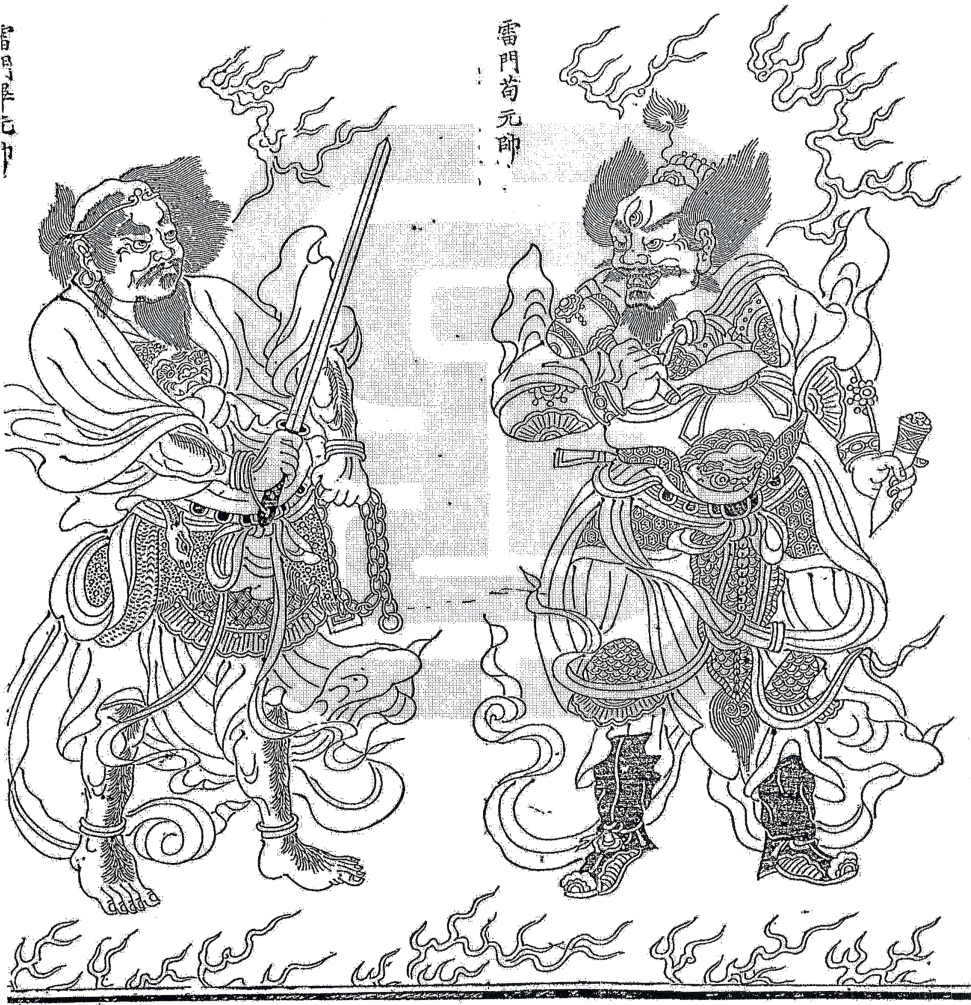 雷門苟元帥
雷門畢元帥